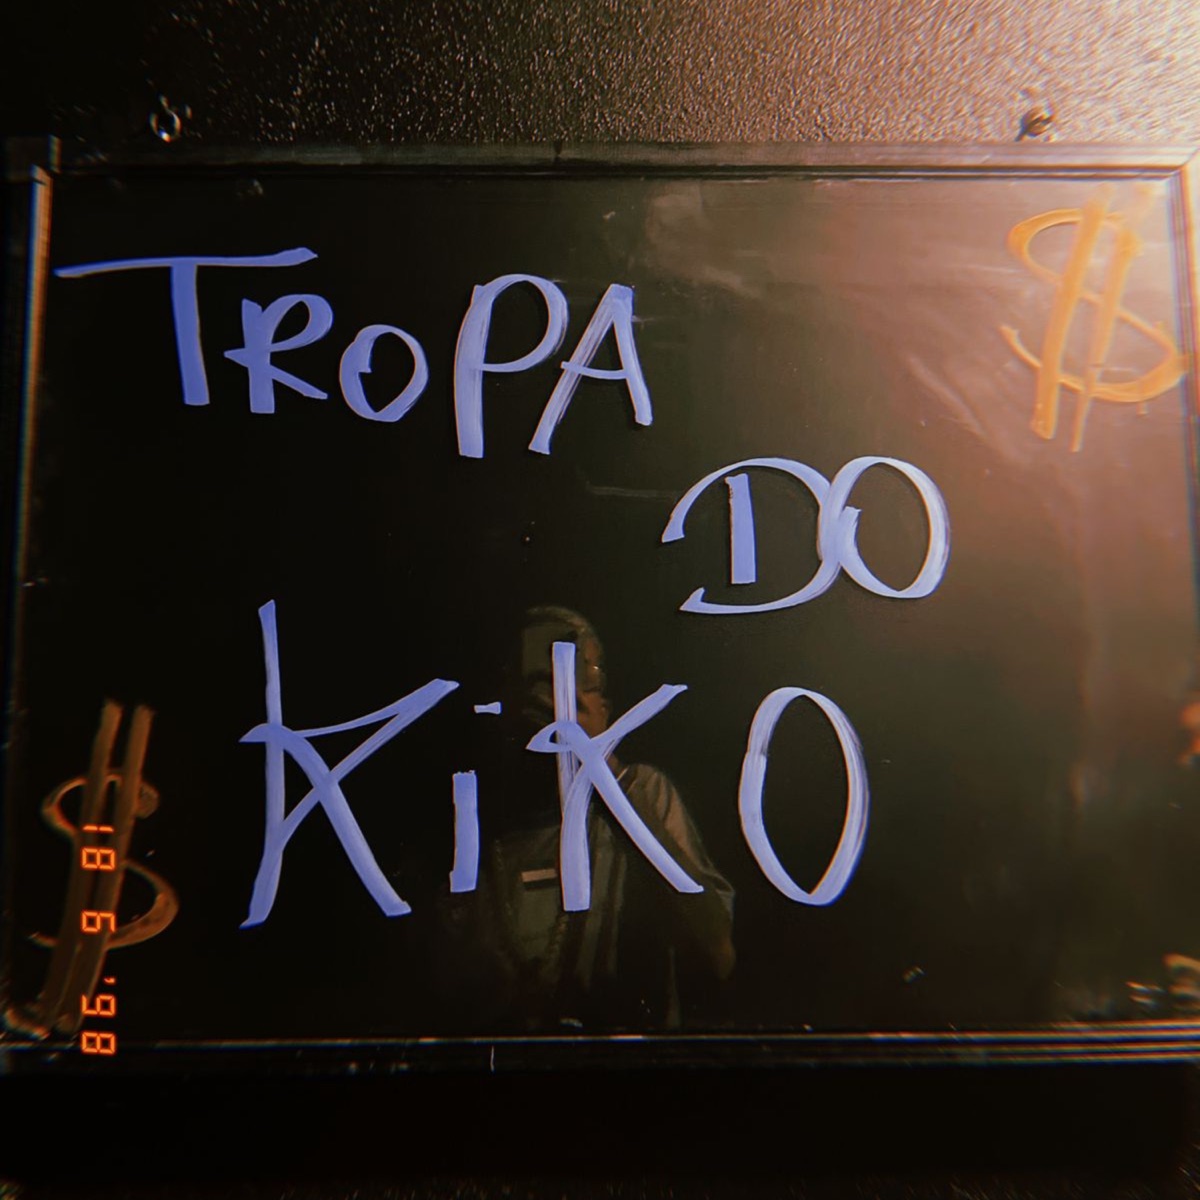 TROPA
$
DO
KiKO
$
18 6 '98